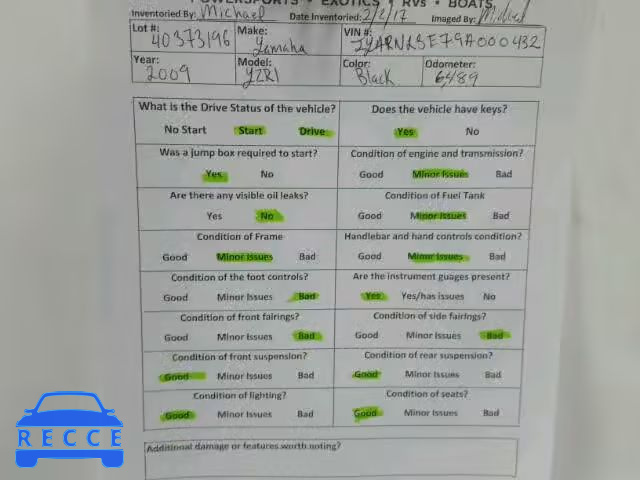 POWERSPORTS • EXOTICS • RVs • BOATS
Inventoried By: Michael Date Inventoried: 2/2/17 Imaged By: Michael
Lot #: 40373196 Make: Yamaha VIN #: JYARN23E79A000432
Year: 2009 Model: YZR1 Color: Black Odometer: 6489
What is the Drive Status of the vehicle? Does the vehicle have keys?
No Start Start Drive Yes No
Was a jump box required to start? Condition of engine and transmission?
Yes No Good Minor Issues Bad
Are there any visible oil leaks? Condition of Fuel Tank
Yes No Good Minor Issues Bad
Condition of Frame Handlebar and hand controls condition?
Good Minor Issues Bad Good Minor Issues Bad
Condition of the foot controls? Are the instrument guages present?
Good Minor Issues Bad Yes Yes/has issues No
Condition of front fairings? Condition of side fairings?
Good Minor Issues Bad Good Minor Issues Bad
Condition of front suspension? Condition of rear suspension?
Good Minor Issues Bad Good Minor Issues Bad
Condition of lighting? Condition of seats?
Good Minor Issues Bad Good Minor Issues Bad
Additional damage or features worth noting?
RECCE